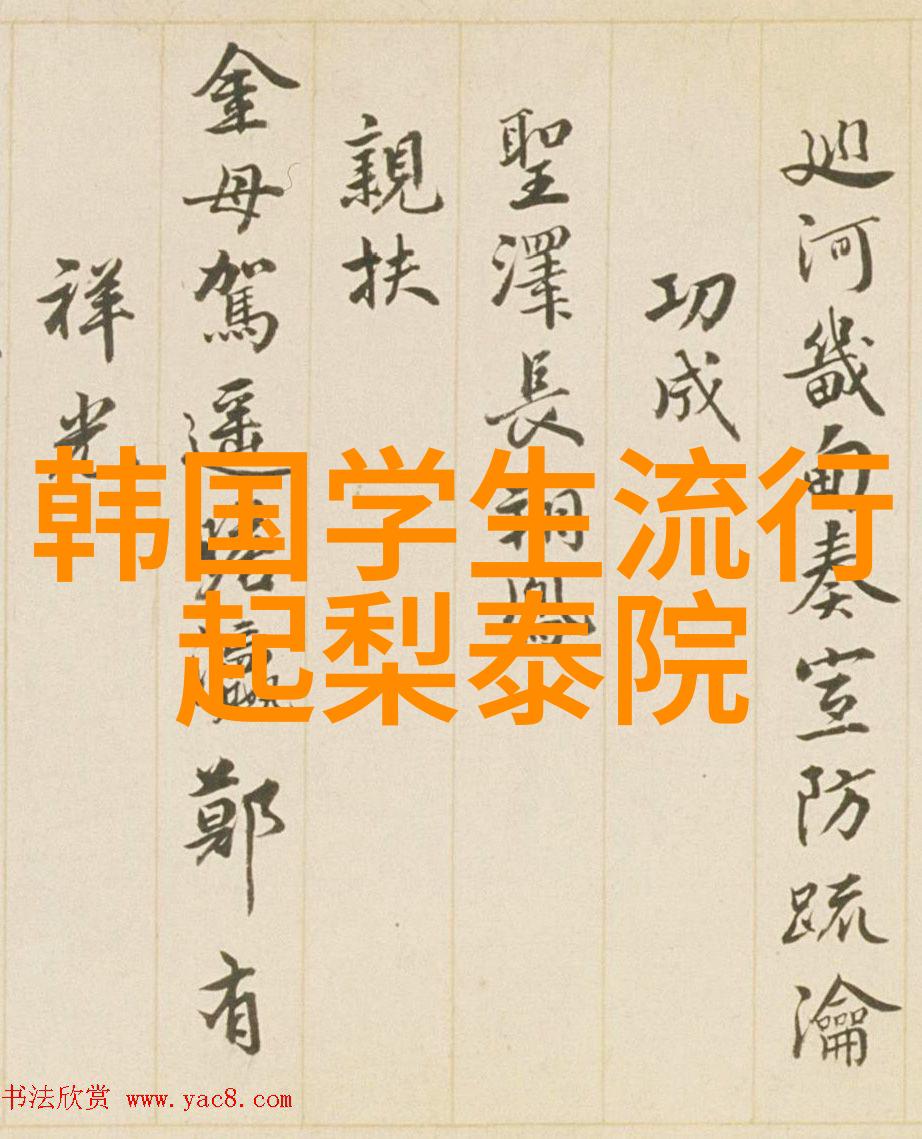 廵河畿面奏宣防疏瀹
功成
聖澤長
親扶
金母駕遥鄭有
祥光
韩国学生流行
起梨泰院
书法欣赏 www.yac8.com